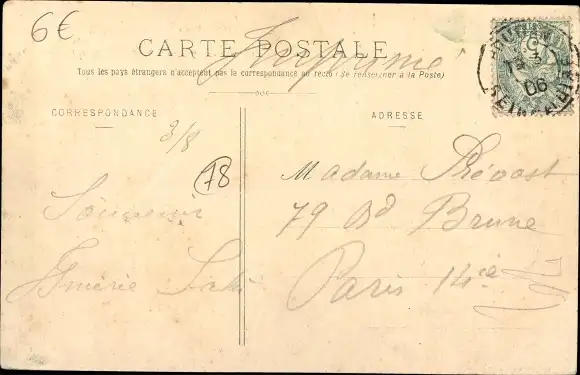 6€
CARTE POSTALE
Imprimé
Tous les pays étrangers n'acceptent pas la correspondance au recto (Se renseigner à la Poste)
CORRESPONDANCE
ADRESSE
3/8
78
Souvenir
Madame Prévost
79 Bd Brune
Paris 14e
06